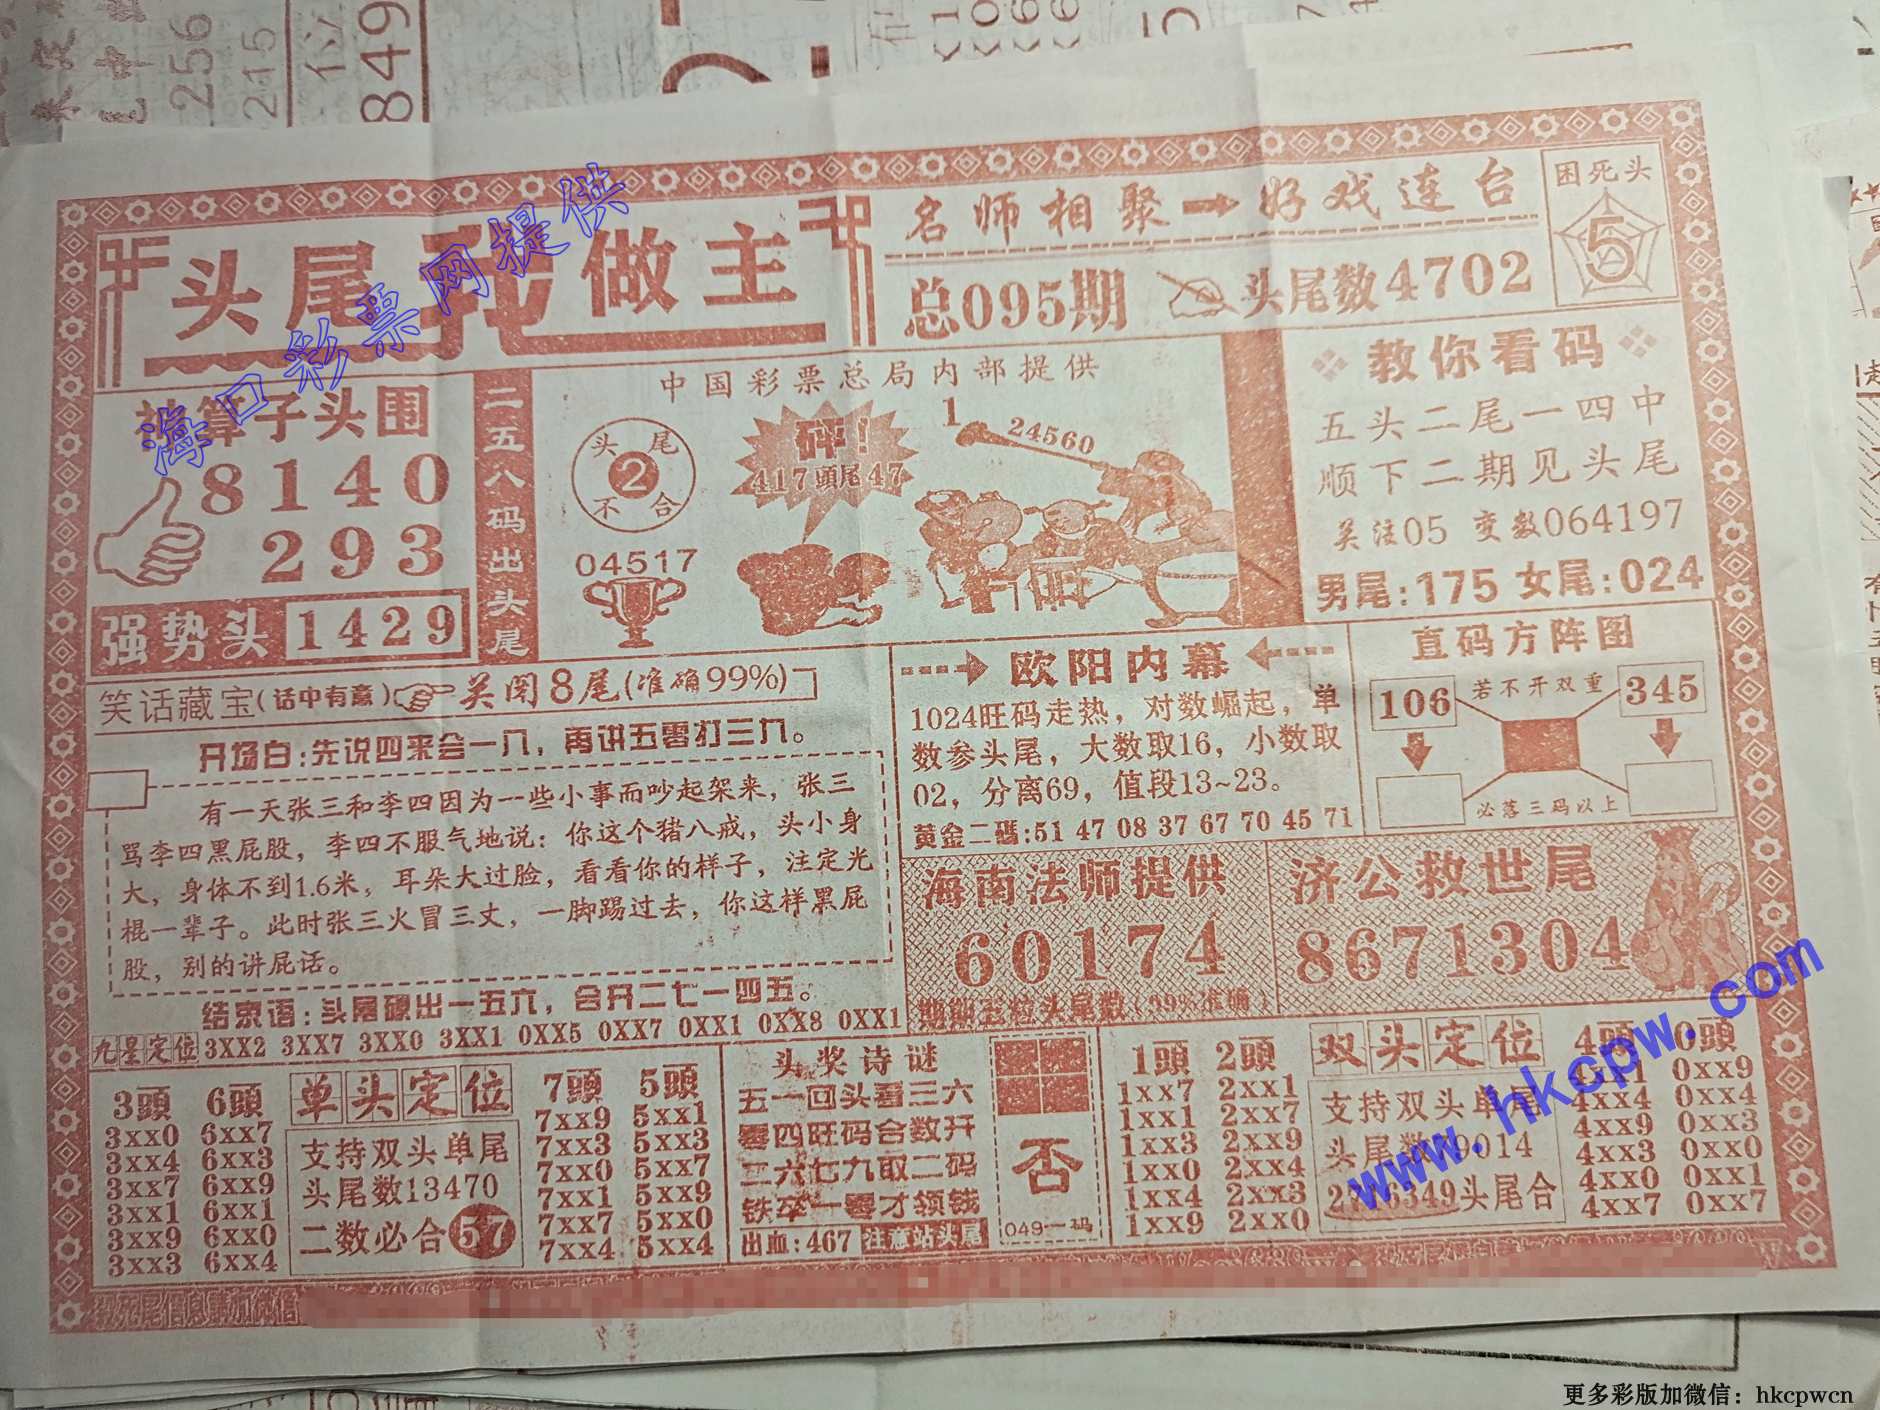 头尾我做主
名师相聚→好戏连台
总095期
头尾数4702
困死头
5
神算子头围
8140
293
强势头 1429
二五八码出头尾
中国彩票总局内部提供
头尾
2
不合
04517
砰!
417頭尾47
1
24560
教你看码
五头二尾一四中
顺下二期见头尾
关注05 变数064197
男尾:175 女尾:024
笑话藏宝(话中有意) 关闭8尾(准确99%)
开场白:先说四来合一八，再讲五零打三九。
有一天张三和李四因为一些小事而吵起架来，张三
骂李四黑屁股，李四不服气地说：你这个猪八戒，头小身
大，身体不到1.6米，耳朵大过脸，看看你的样子，注定光
棍一辈子。此时张三火冒三丈，一脚踢过去，你这样黑屁
股，别的讲屁话。
结束语:头尾硬出一五六，合开二七一四五。
欧阳内幕
1024旺码走热，对数崛起，单
数参头尾，大数取16，小数取
02，分离69，值段13~23。
黄金二碼:51 47 08 37 67 70 45 71
直码方阵图
106 若不开双重 345
必落三码以上
海南法师提供
60174
期期五粒头尾数(99%准确)
济公救世尾
8671304
九星定位 3XX2 3XX7 3XX0 3XX1 0XX5 0XX7 0XX1 0XX8 0XX1
3頭 6頭
3xx0 6xx7
3xx4 6xx3
3xx7 6xx9
3xx1 6xx1
3xx9 6xx0
3xx3 6xx4
单头定位
支持双头单尾
头尾数13470
二数必合57
7頭 5頭
7xx9 5xx1
7xx3 5xx3
7xx0 5xx7
7xx1 5xx9
7xx7 5xx0
7xx4 5xx4
头奖诗谜
五一回头看三六
零四旺码合数开
二六七九取二码
铁卒一零才领钱
出血:467 注意站头尾
否
049一码
1頭 2頭
1xx7 2xx1
1xx1 2xx7
1xx3 2xx9
1xx0 2xx4
1xx4 2xx3
1xx9 2xx0
双头定位
支持双头单尾
头尾数 9014
6349头尾合
4頭 0頭
4xx1 0xx9
4xx4 0xx4
4xx9 0xx3
4xx3 0xx0
4xx0 0xx1
4xx7 0xx7
海口彩票网提供
www.hkcpw.com
更多彩版加微信：hkcpwcn